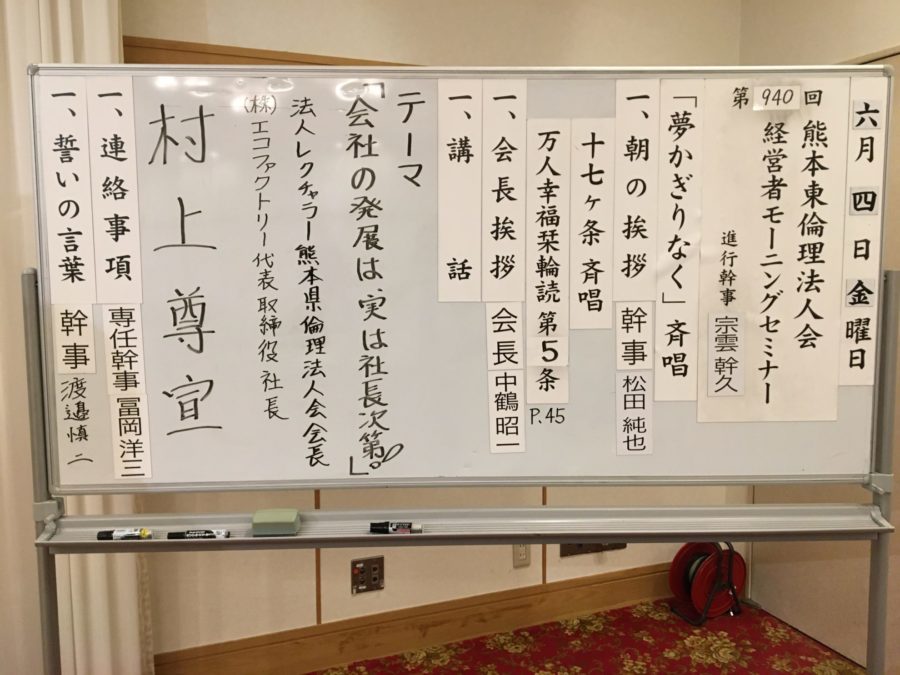 六月四日金曜日
第940回 熊本東倫理法人会
経営者モーニングセミナー
進行幹事 宗雲 幹久
「夢かぎりなく」斉唱
一、朝の挨拶 幹事 松田 純也
十七ヶ条 斉唱
万人幸福栞輪読 第5条 P.45
一、会長挨拶 会長 中鶴 昭一
一、講話
テーマ
「会社の発展は、実は社長次第。」
法人レクチャラー熊本県倫理法人会会長
(株)エコファクトリー代表取締役 社長
村上 尊宣
一、連絡事項 専任幹事 冨岡洋三
一、誓いの言葉 幹事 渡邉慎二